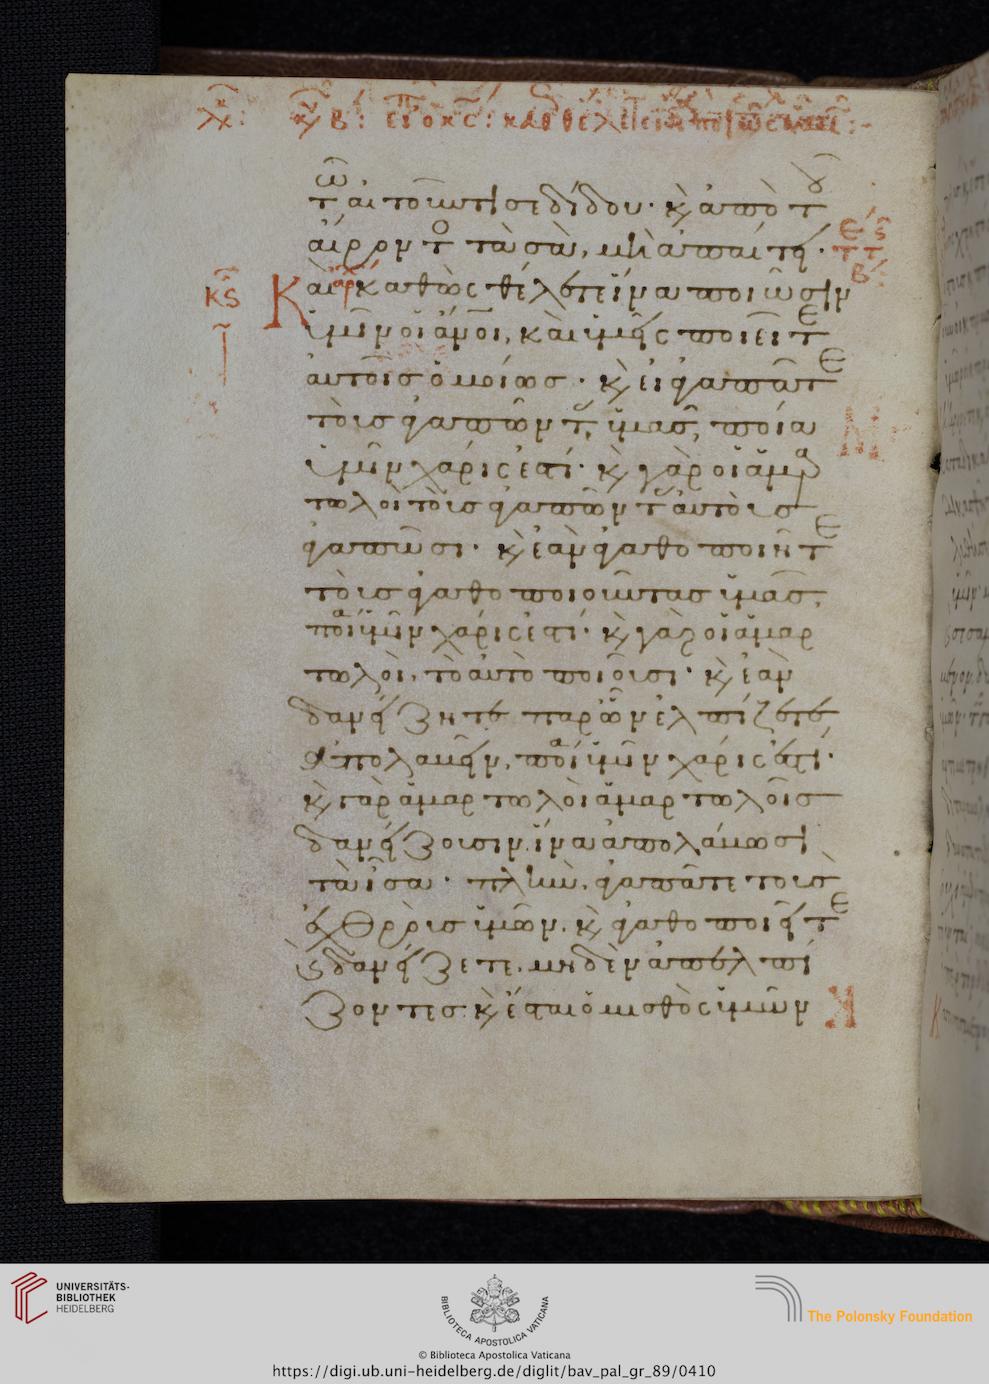 τῶ αἰτοῦντί σε δίδου· κ̀ ἀπὸ τοῦ
αἴροντο τὰ σὰ, μὴ ἀπαίτει·
Καὶ καθὼς θέλετε ἵνα ποιῶσιν
ὑμῖν οἱ ἄνοι, καὶ ὑμεῖς ποιεῖτε
αὐτοῖς ὁμοίως· κ̀ εἰ ἀγαπᾶτε
τοὺς ἀγαπῶντας ὑμᾶς, ποία
ὑμῖν χάρις ἐστί· κ̀ γὰρ οἱ ἁμαρ
τωλοὶ τοὺς ἀγαπῶντας αὐτοὺς
ἀγαπῶσι· κ̀ ἐὰν ἀγαθοποιῆτε
τοὺς ἀγαθοποιοῦντας ὑμᾶς,
ποία ὑμῖν χάρις ἐστί· κ̀ γὰρ οἱ ἁμαρ
τωλοὶ, τὸ αὐτὸ ποιοῦσι· κ̀ ἐὰν
δανείζητε παρ' ὧν ἐλπίζετε
ἀπολαβεῖν, ποία ὑμῖν χάρις ἐστί·
κ̀ γὰρ ἁμαρτωλοὶ ἁμαρτωλοῖς
δανείζουσιν, ἵνα ἀπολάβωσι
τὰ ἴσα· πλὴν, ἀγαπᾶτε τοὺς
ἐχθροὺς ὑμῶν, κ̀ ἀγαθοποιεῖτε
κ̀ δανείζετε, μηδὲν ἀπελπί
ζοντες· κ̀ ἔσται ὁ μισθὸς ὑμῶν
UNIVERSITÄTS-
BIBLIOTHEK
HEIDELBERG
BIBLIOTECA APOSTOLICA VATICANA
The Polonsky Foundation
© Biblioteca Apostolica Vaticana
https://digi.ub.uni-heidelberg.de/diglit/bav_pal_gr_89/0410